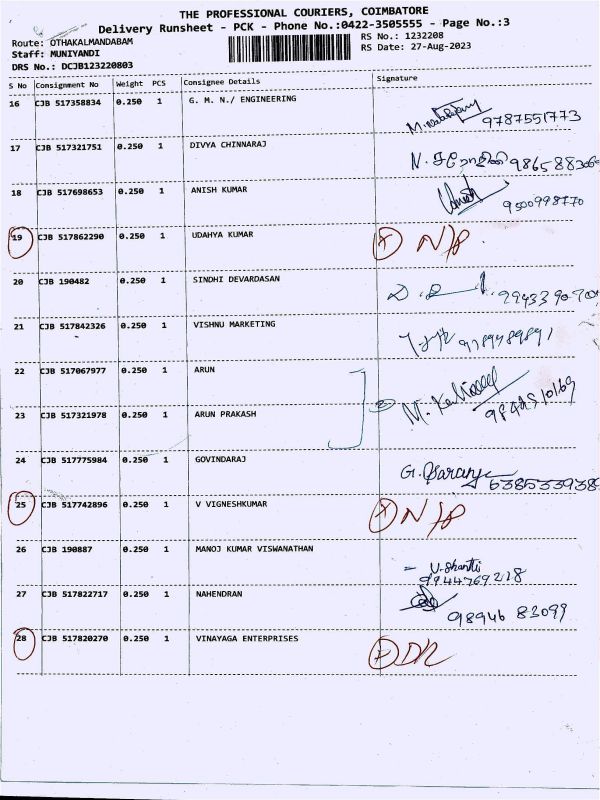 THE PROFESSIONAL COURIERS, COIMBATORE
Delivery Runsheet - PCK - Phone No.:0422-3505555 - Page No.:3
Route: OTHAKALMANDABAM
RS No.: 1232208
Staff: MUNIYANDI
RS Date: 27-Aug-2023
DRS No.: DCJB123220803
S No Consignment No Weight PCS Consignee Details Signature
16 CJB 517358834 0.250 1 G. M. N./ ENGINEERING 9787551773
17 CJB 517321751 0.250 1 DIVYA CHINNARAJ
18 CJB 517698653 0.250 1 ANISH KUMAR 9500998770
19 CJB 517862290 0.250 1 UDAHYA KUMAR N/P
20 CJB 190482 0.250 1 SINDHI DEVARDASAN
21 CJB 517842326 0.250 1 VISHNU MARKETING
22 CJB 517067977 0.250 1 ARUN
23 CJB 517321978 0.250 1 ARUN PRAKASH
24 CJB 517775984 0.250 1 GOVINDARAJ
25 CJB 517742896 0.250 1 V VIGNESHKUMAR N/P
26 CJB 190887 0.250 1 MANOJ KUMAR VISWANATHAN V. Shanthi
9944769218
27 CJB 517822717 0.250 1 NAHENDRAN 98946 83099
28 CJB 517820270 0.250 1 VINAYAGA ENTERPRISES